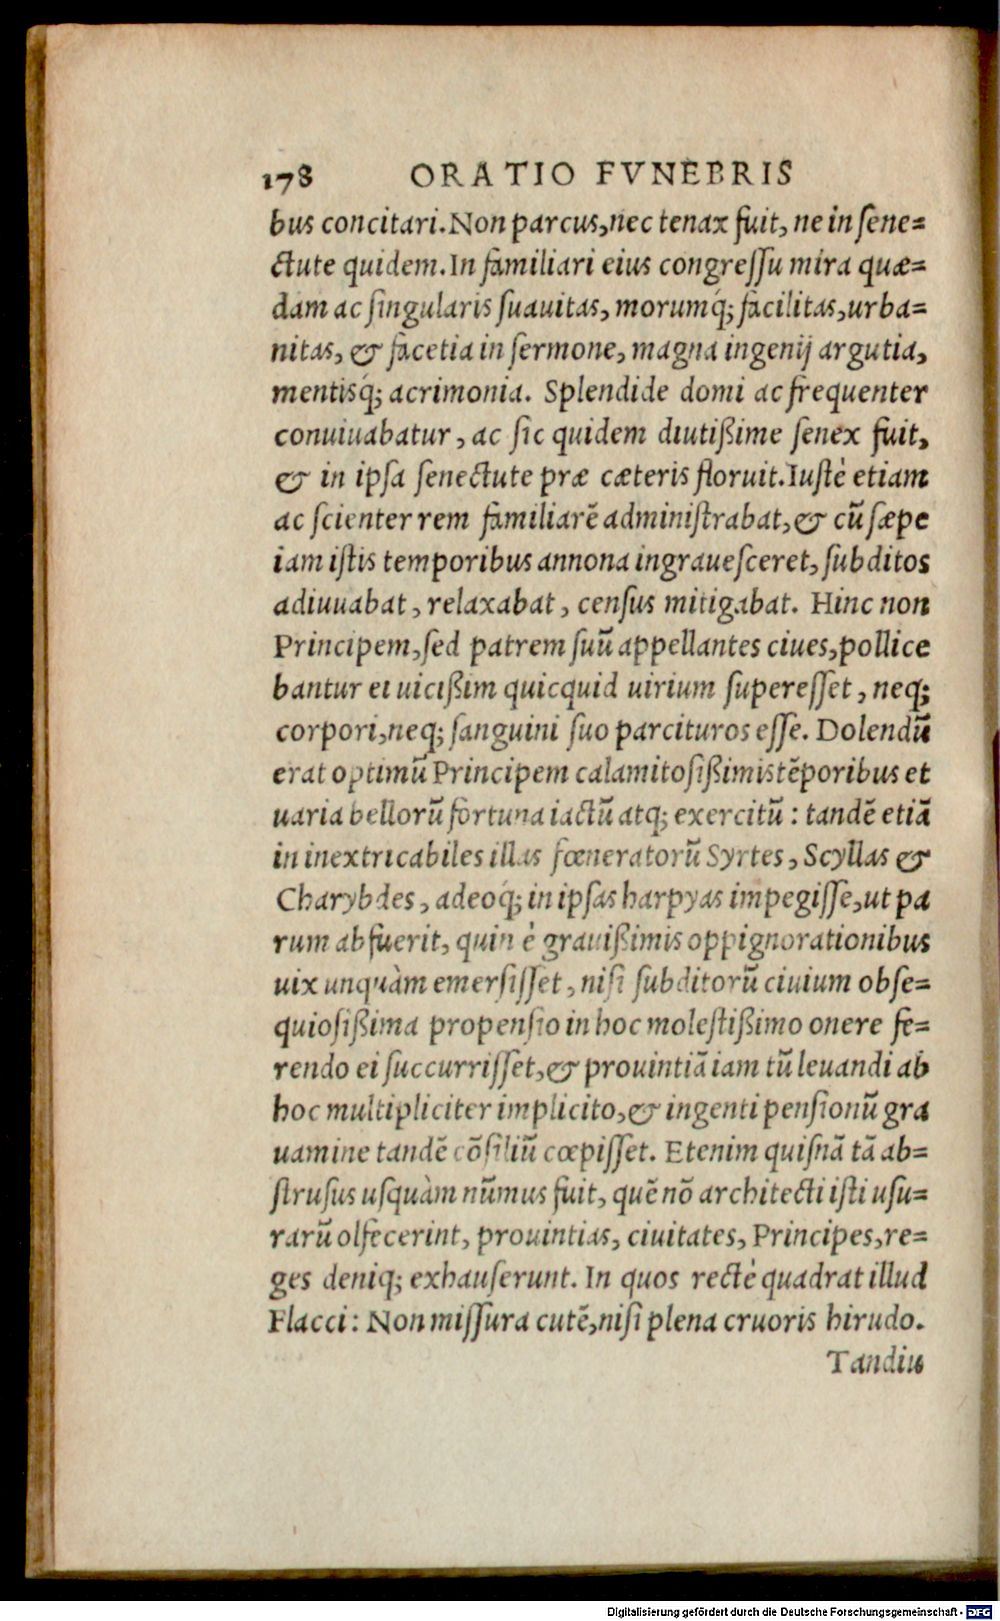 178 ORATIO FVNEBRIS
bus concitari. Non parcus, nec tenax fuit, ne in sene=
ctute quidem. In familiari eius congressu mira quæ=
dam ac singularis suauitas, morumq́; facilitas, urba=
nitas, & facetia in sermone, magna ingenij argutia,
mentisq́; acrimonia. Splendide domi ac frequenter
conuiuabatur, ac sic quidem diutißime senex fuit,
& in ipsa senectute præ cæteris floruit. Iustè etiam
ac scienter rem familiarē administrabat, & cū sæpe
iam istis temporibus annona ingrauesceret, subditos
adiuuabat, relaxabat, census mitigabat. Hinc non
Principem, sed patrem suū appellantes ciues, pollice
bantur ei uicißim quicquid uirium superesset, neq;
corpori, neq; sanguini suo parcituros esse. Dolendū
erat optimū Principem calamitosißimis tēporibus et
uaria bellorū fortuna iactū atq; exercitū: tandē etiā
in inextricabiles illas fœneratorū Syrtes, Scyllas &
Charybdes, adeoq́; in ipsas harpyas impegisse, ut pa
rum abfuerit, quin è grauißimis oppignorationibus
uix unquàm emersisset, nisi subditorū ciuium obse=
quiosißima propensio in hoc molestißimo onere fe=
rendo ei succurrisset, & prouintiā iam tū leuandi ab
hoc multipliciter implicito, & ingenti pensionū gra
uamine tandē cōsiliū cœpisset. Etenim quisnā tā ab=
strusus usquàm nūmus fuit, quē nō architecti isti usu=
rarū olfecerint, prouintias, ciuitates, Principes, re=
ges deniq; exhauserunt. In quos rectè quadrat illud
Flacci: Non missura cutē, nisi plena cruoris hirudo.
Tandiu
Digitalisierung gefördert durch die Deutsche Forschungsgemeinschaft - DFG